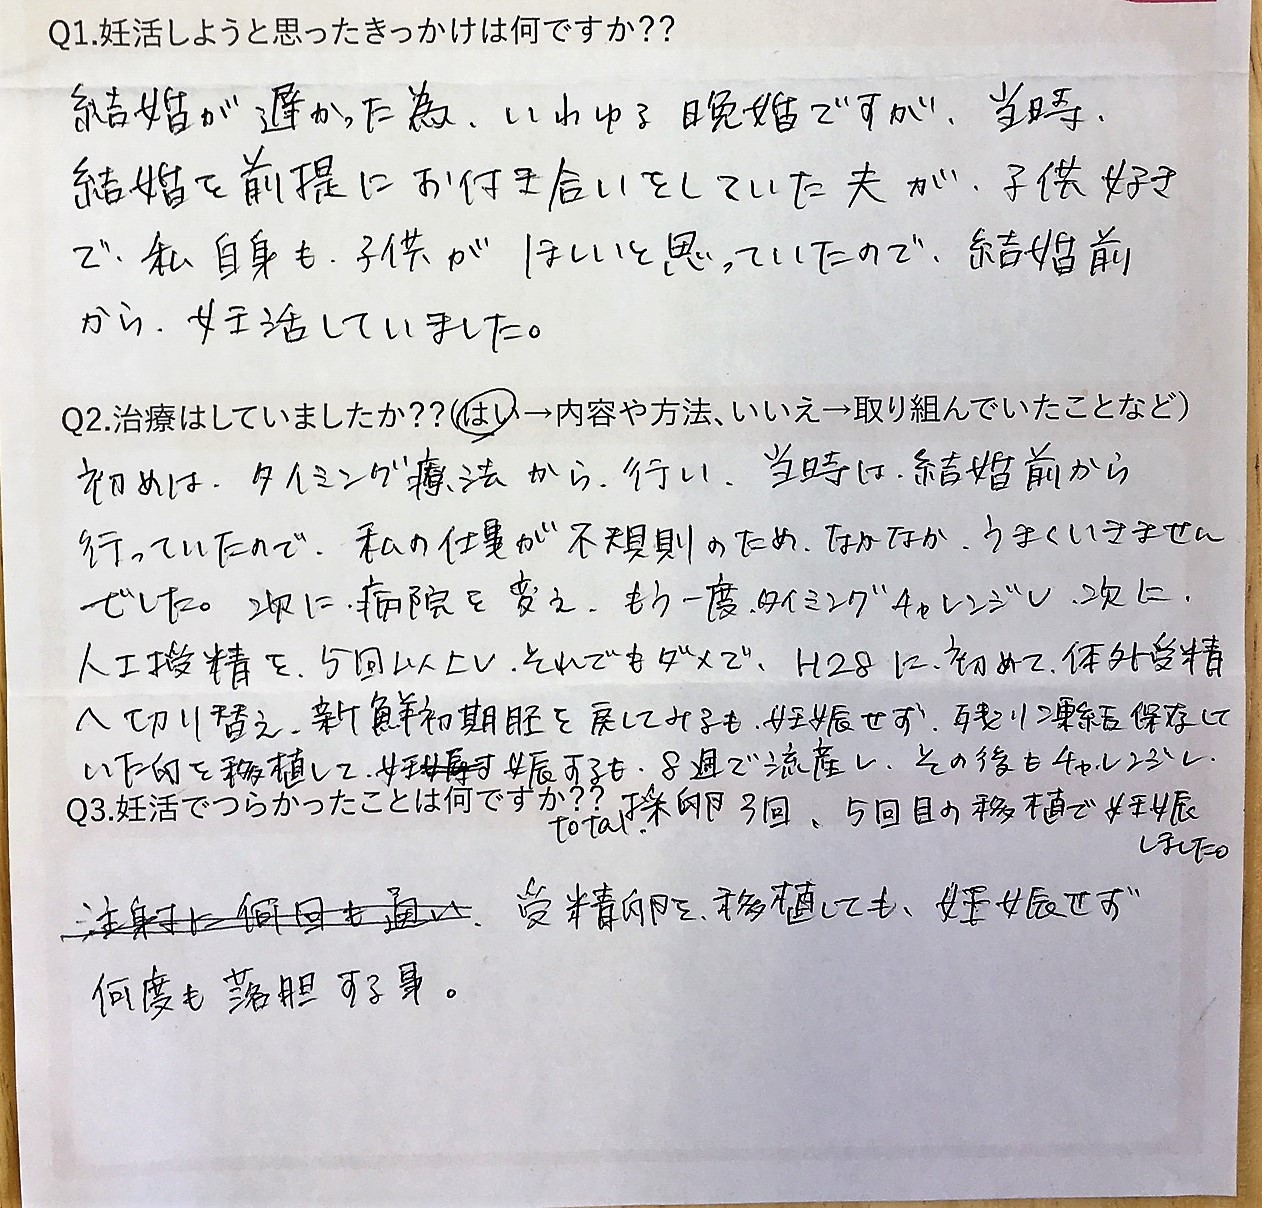 Q1.妊活しようと思ったきっかけは何ですか??
結婚が遅かった為、いわゆる晩婚ですが、当時、
結婚を前提にお付き合いをしていた夫が、子供好き
で、私自身も、子供がほしいと思っていたので、結婚前
から、妊活していました。
Q2.治療はしていましたか??(はい→内容や方法、いいえ→取り組んでいたことなど)
初めは、タイミング療法から、行い、当時は、結婚前から
行っていたので、私の仕事が不規則のため、なかなか、うまくいきません
でした。次に、病院を変え、もう一度、タイミングチャレンジし、次に、
人工授精を、5回以上し、それでもダメで、H28に、初めて、体外受精
へ切り替え、新鮮初期胚を戻してみるも、妊娠せず、残り凍結保存して
いた卵を移植して、妊娠するも、8週で流産し、その後もチャレンジし、
Q3.妊活でつらかったことは何ですか??
total、採卵3回、5回目の移植で妊娠
しました。
注射に何回も通い、受精卵を、移植しても、妊娠せず
何度も落胆する事。